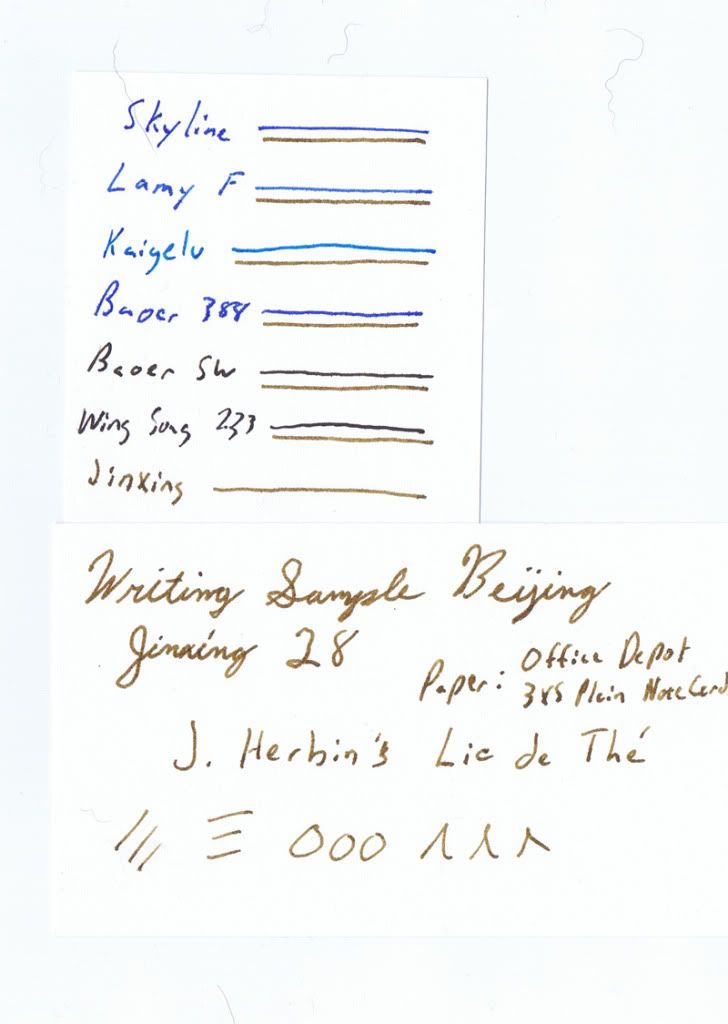 Skyline
Lamy F
Kaigelu
Baoer 388
Baoer SW
Wing Sung 233
Jinxing
Writing Sample Beijing
Jinxing 28
Paper: Office Depot
3x5 Plain NoteCard
J. Herbin's Lie de Thé